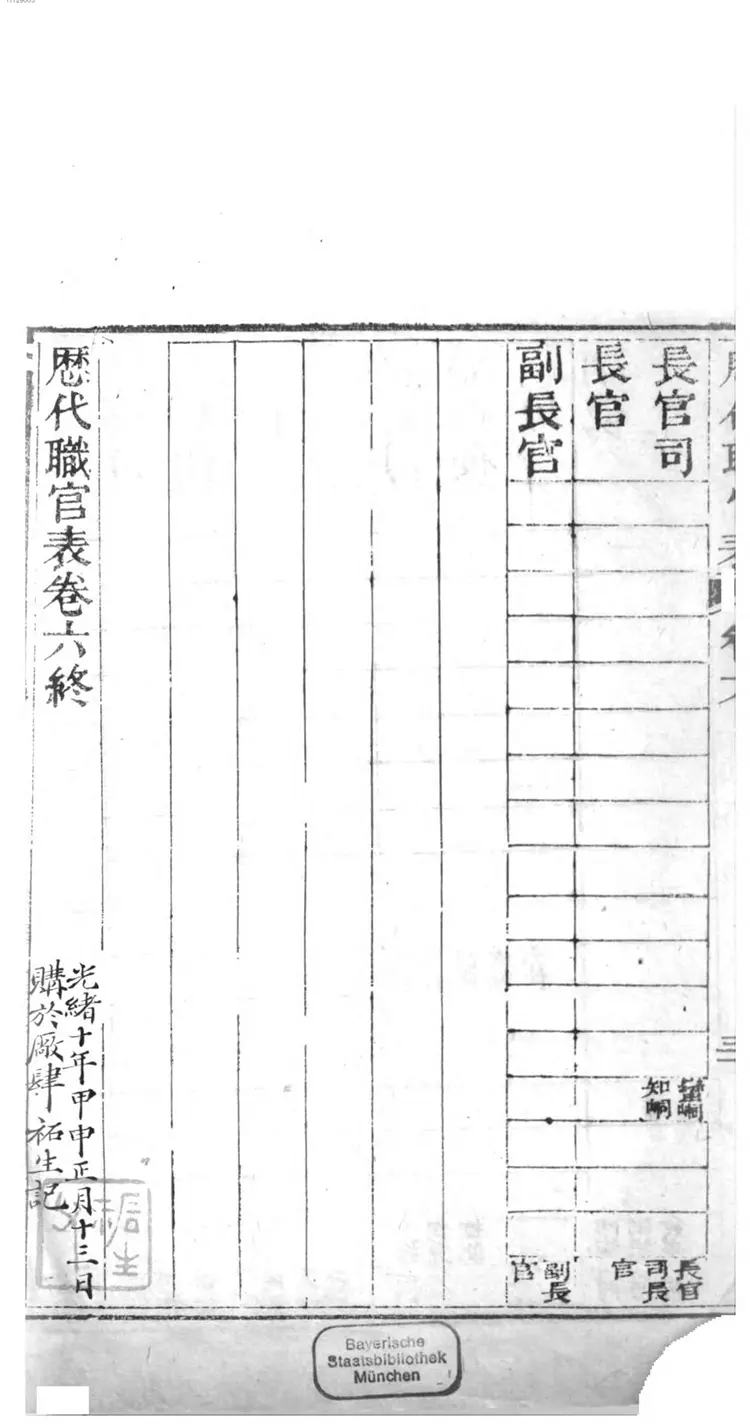 長官司
長官
副長官
蠻峒
知峒
長官
司長
官
副長
官
歷代職官表卷六終
光緒十年甲申正月十三日
購於廠肆 祏生記
Bayerische
Staatsbibliothek
München